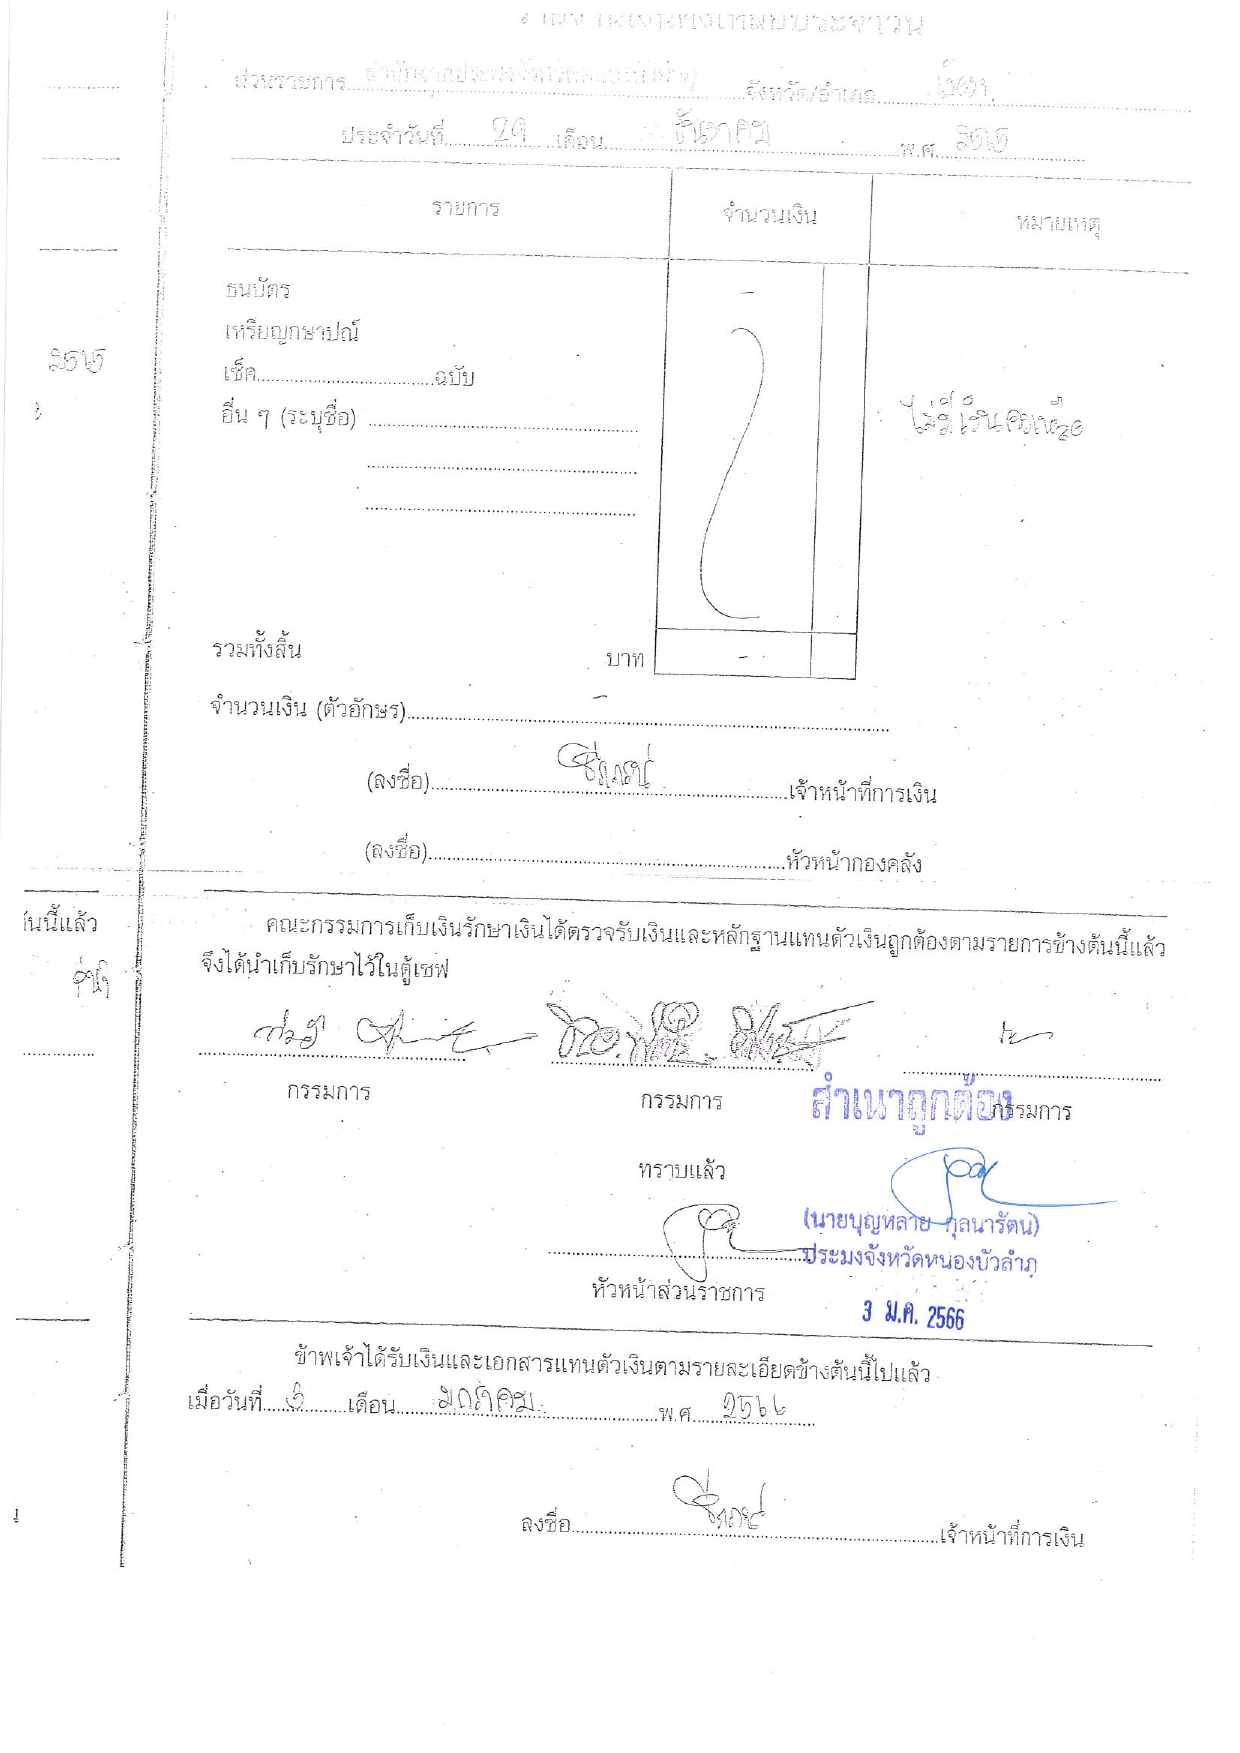 ส่วนราชการ สำนักงานประมงจังหวัดหนองบัวลำภู จังหวัด/อำเภอ เมือง
ประจำวันที่ 29 เดือน ธันวาคม พ.ศ. ๒๕๖๕
รายการ จำนวนเงิน หมายเหตุ
ธนบัตร -
เหรียญกษาปณ์
๒๕๖๕
เช็ค ฉบับ
อื่น ๆ (ระบุชื่อ) ไม่มีเงินคงเหลือ
รวมทั้งสิ้น บาท -
จำนวนเงิน (ตัวอักษร) -
(ลงชื่อ) เจ้าหน้าที่การเงิน
(ลงชื่อ) หัวหน้ากองคลัง
นนี้แล้ว
คณะกรรมการเก็บเงินรักษาเงินได้ตรวจรับเงินและหลักฐานแทนตัวเงินถูกต้องตามรายการข้างต้นนี้แล้ว
จึงได้นำเก็บรักษาไว้ในตู้เซฟ
กรรมการ กรรมการ กรรมการ
สำเนาถูกต้อง
ทราบแล้ว
(นายบุญหลาย กุลนารัตน)
ประมงจังหวัดหนองบัวลำภู
หัวหน้าส่วนราชการ
3 ม.ค. 2566
ข้าพเจ้าได้รับเงินและเอกสารแทนตัวเงินตามรายละเอียดข้างต้นนี้ไปแล้ว
เมื่อวันที่ ๓ เดือน มกราคม พ.ศ. 2566
ลงชื่อ เจ้าหน้าที่การเงิน